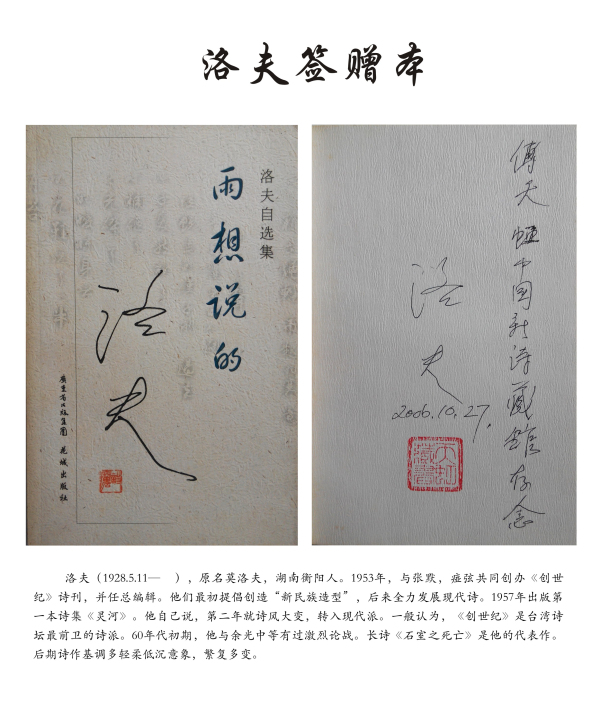 洛夫签赠本
洛夫自选集
雨想说的
洛夫
广东省出版集团 花城出版社
傅天虹中国新诗藏馆存念
洛夫
2006.10.27.
洛夫（1928.5.11—　），原名莫洛夫，湖南衡阳人。1953年，与张默，痖弦共同创办《创世
纪》诗刊，并任总编辑。他们最初提倡创造“新民族造型”，后来全力发展现代诗。1957年出版第
一本诗集《灵河》。他自己说，第二年就诗风大变，转入现代派。一般认为，《创世纪》是台湾诗
坛最前卫的诗派。60年代初期，他与余光中等有过激烈论战。长诗《石室之死亡》是他的代表作。
后期诗作基调多轻柔低沉意象，繁复多变。